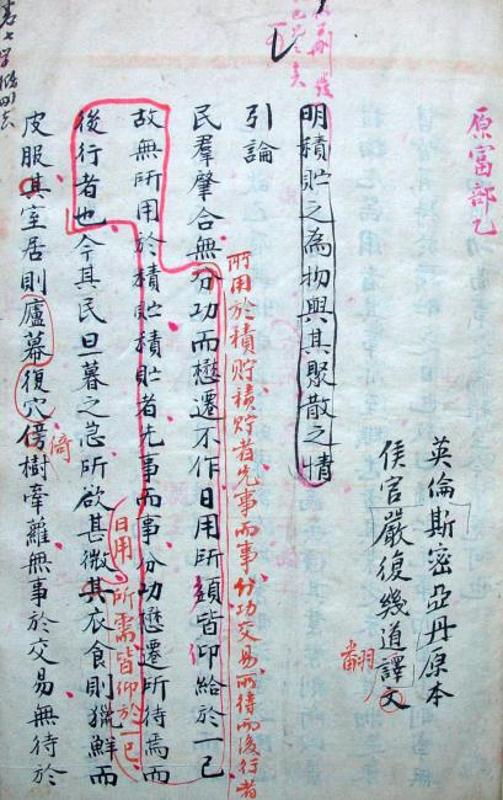 原富部乙
英倫斯密亞丹原本
侯官嚴復幾道譯文
翻
明積貯之為物與其聚散之情
引論
民羣肇合無分功而懋遷不作日用所須皆仰給於一己
所用於積貯積貯者先事而事分功交易所待而後行者
故無所用於積貯積貯者先事而事分功懋遷所待焉而
後行者也今其民旦暮之急所欲甚微其衣食則獵鮮而
日用所需皆仰於一己
皮服其室居則廬幕復穴傍樹牽蘿無事於交易無待於
倚